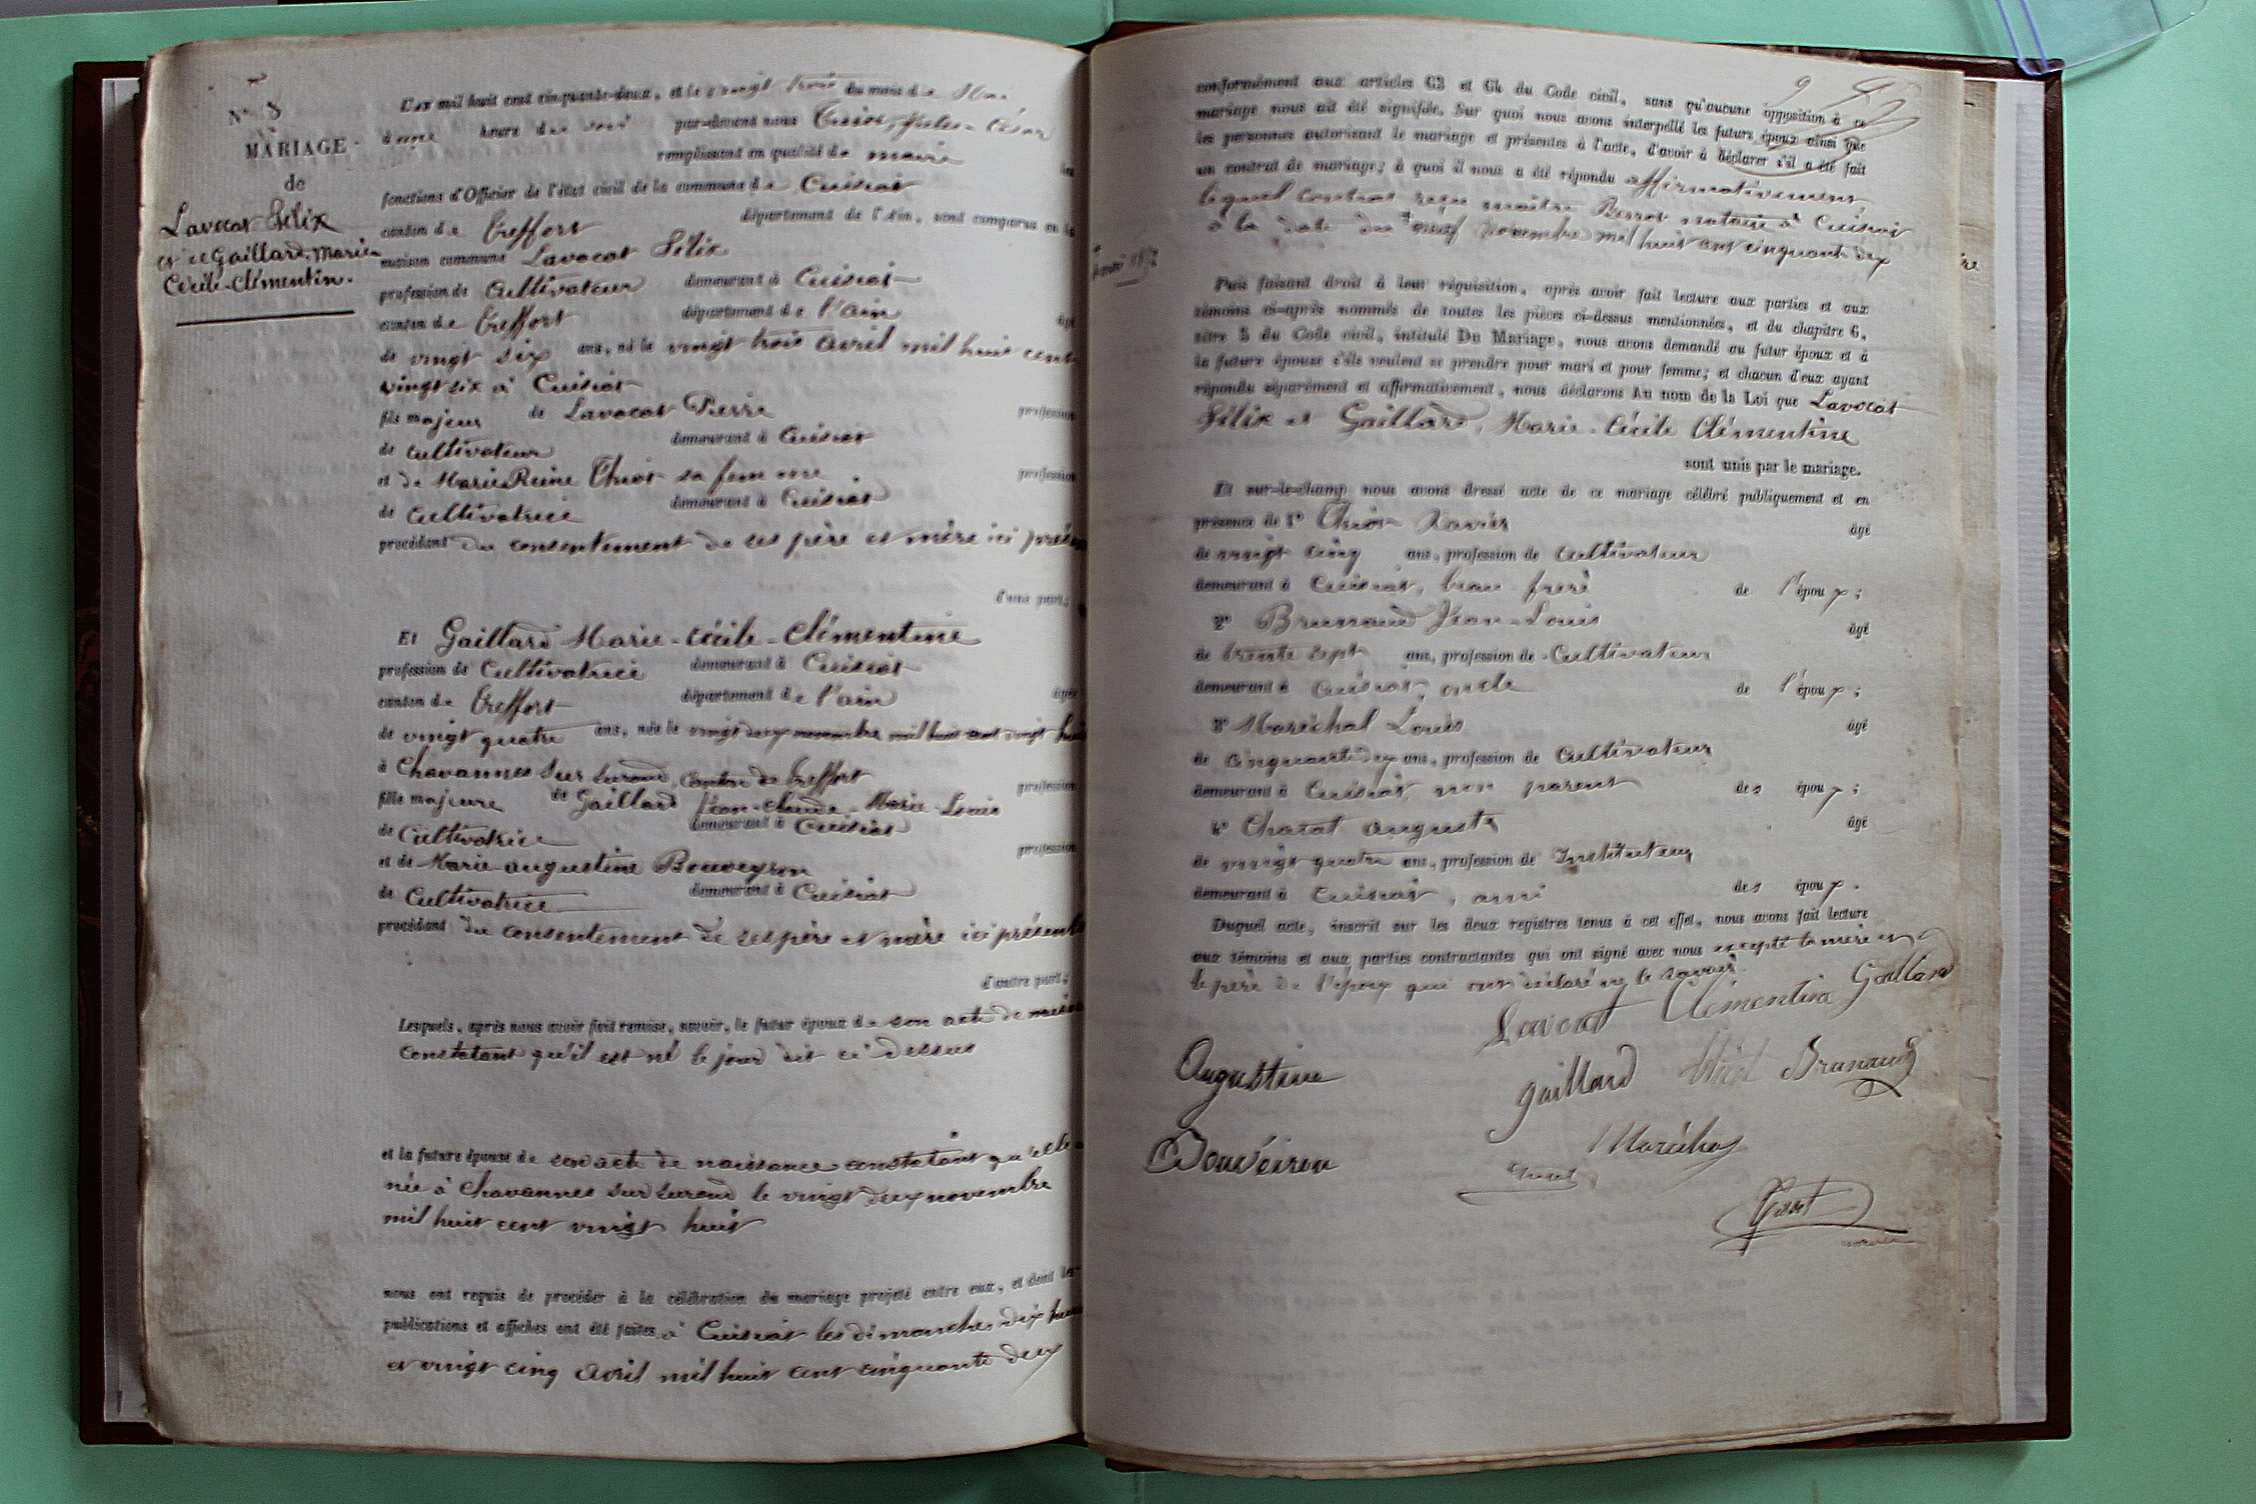 N° 8
MARIAGE
de
Lavocat Félix
et de Gaillard, Marie
Cécile-Clémentin.
L'an mil huit cent cinquante-deux, et le vingt trois du mois de
heure du soir par-devant nous Tissot, Jules-César
remplissant en qualité de maire les
fonctions d'Officier de l'état civil de la commune de Cuisiat
canton de Treffort département de l'Ain, sont comparus en la
maison commune Lavocat Félix
profession de Cultivateur demeurant à Cuisiat
canton de Treffort département de l'ain âgé
de vingt six ans, né le vingt trois avril mil huit cent
vingt six à Cuisiat
fils majeur de Lavocat Pierre profession
de cultivateur demeurant à Cuisiat
et de Marie Reine Thiot sa femme profession
de Cultivatrice demeurant à Cuisiat
procédant du consentement de ses père et mère ici
d'une part;
Et Gaillard Marie-Cécile-Clémentine
profession de Cultivatrice demeurant à Cuisiat
canton de Treffort département de l'ain âgée
de vingt quatre ans, née le vingt deux novembre mil huit cent vingt huit
à Chavannes sur Suran, Canton de Treffort
fille majeure de Gaillard Jean-Claude-Marie-Louis profession
de Cultivatrice demeurant à Cuisiat
et de Marie-augustine Bouveyron profession
de Cultivatrice demeurant à Cuisiat
procédant du consentement de ses père et mère ici présents
d'autre part;
Lesquels, après nous avoir fait remise, savoir, le futur époux de son acte de
Constatant qu'il est né le jour dit ci dessus
et la future épouse de son acte de naissance constatant qu'elle
née à Chavannes sur Suran le vingt deux novembre
mil huit cent vingt huit
nous ont requis de procéder à la célébration du mariage projeté entre eux, et dont les
publications et affiches ont été faites à Cuisiat les dimanches dix huit
et vingt cinq avril mil huit cent cinquante deux
9
conformément aux articles 63 et 64 du Code civil, sans qu'aucune opposition à ce
mariage nous ait été signifiée. Sur quoi nous avons interpellé les futurs époux ainsi que
les personnes autorisant le mariage et présentes à l'acte, d'avoir à déclarer s'il a été fait
un contrat de mariage; à quoi il nous a été répondu affirmativement,
lequel contrat reçu maître Perrot notaire à Cuisiat
à la date du neuf novembre mil huit cent cinquante deux
Puis faisant droit à leur réquisition, après avoir fait lecture aux parties et aux
témoins ci-après nommés de toutes les pièces ci-dessus mentionnées, et du chapitre 6,
titre 5 du Code civil, intitulé Du Mariage, nous avons demandé au futur époux et à
la future épouse s'ils veulent se prendre pour mari et pour femme; et chacun d'eux ayant
répondu séparément et affirmativement, nous déclarons Au nom de la Loi que Lavocat
Félix et Gaillard, Marie-Cécile Clémentine
sont unis par le mariage.
Et sur-le-champ nous avons dressé acte de ce mariage célébré publiquement et en
présence de 1° Thiot Xavier âgé
de vingt cinq ans, profession de cultivateur
demeurant à Cuisiat, beau-frère de l'époux;
2° Brunaud Jean-Louis âgé
de trente sept ans, profession de Cultivateur
demeurant à Cuisiat, oncle de l'époux;
3° Maréchal Louis âgé
de cinquante deux ans, profession de Cultivateur
demeurant à Cuisiat, non parent des époux;
4° Chatat auguste âgé
de vingt quatre ans, profession de Instituteur
demeurant à Cuisiat, ami des époux.
Duquel acte, inscrit sur les deux registres tenus à cet effet, nous avons fait lecture
aux témoins et aux parties contractantes qui ont signé avec nous excepté la mère et
le père de l'époux qui ont déclaré ne le savoir.
Lavocat Clémentine Gaillard
Augustine gaillard Thiot Brunaud
Bouveiron Maréchal
Tissot